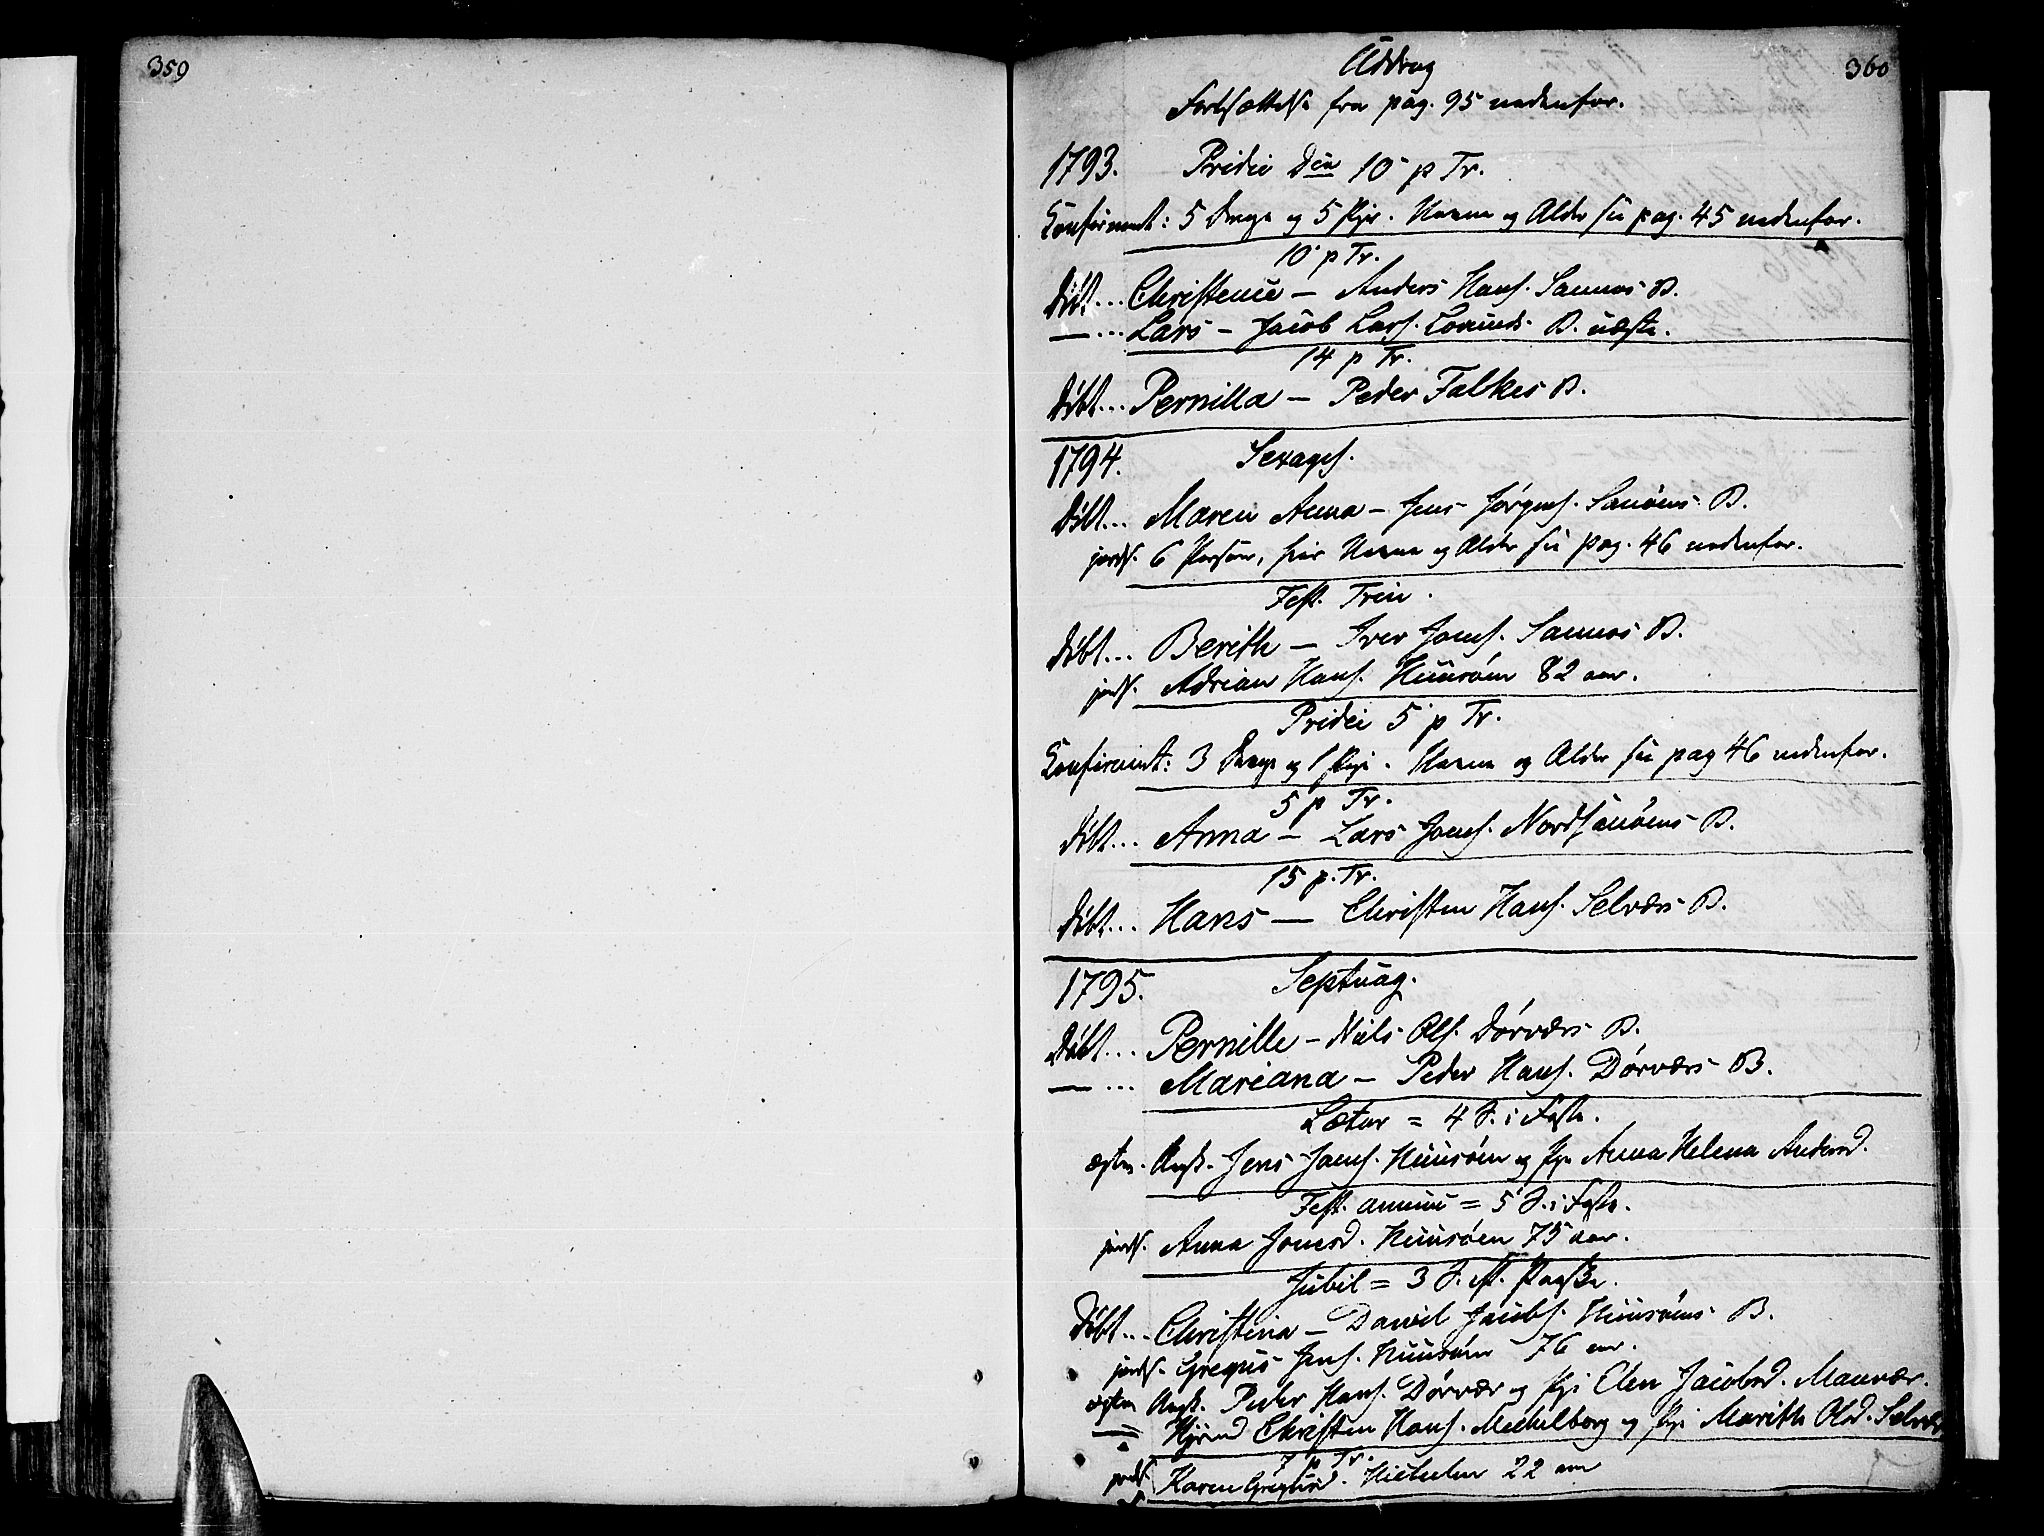 359
360
Uddrag
Fortsættelse fra pag. 95 nedenfor.
1793. Pridie Den 10 p Tr.
Confirmert: 5 Drenge og 5 Piger. Navne og Alder see pag. 45 nedenfor.
10 p Tr.
Døbt... Christence - Anders Hans. Sannes B.
— ... Lars - Jacob Lars. Lovunds B. næste.
14 p Tr.
Døbt... Pernilla - Peder Falkes B.
1794. Sexages.
Døbt... Maren Anna - Jens Jørgens. Sanøens B.
jords. 6 Personer, hvis Navne og Alder see pag. 46 nedenfor.
Fest. Trin.
Døbt... Berith - Iver Jons. Sannes B.
jords. Adrian Hans. Huusøen 82 aar.
Pridei 5 p Tr.
Confirmert: 3 Drenge og 1 Pige. Navne og Alder see pag 46 nedenfor.
5 p Tr.
Døbt... Anna - Lars Jons. Nordsanøens B.
15 p. Tr.
Døbt... Hans - Christen Hans. Selværs B.
1795. Septuag.
Døbt... Pernille - Niels Ols. Dørværs B.
— ... Mariana - Peder Hans. Dørværs B.
Lætar = 4 S. i Faste.
ægtev. Ungk. Jens Jons. Huusøen og Pige Anna Helena Andersd.
Fest. annunc = 5 S. i Faste.
jords. Anna Jonsd. Huusøen 75 aar.
Jubil = 3 S. eft. Paaske.
Døbt... Christina - Daniel Jacobs. Huusøens B.
jords. Gregus Jens. Huusøen 76 aar.
ægtev Ungk. Peder Hans. Dørvær og Pige Elen Jacobsd. Maanær.
= Christen Hans. Mechelborg og Pige Marith Olsd. Selvær
7 p Tr.
jords Karen Gregusd. 22 aar